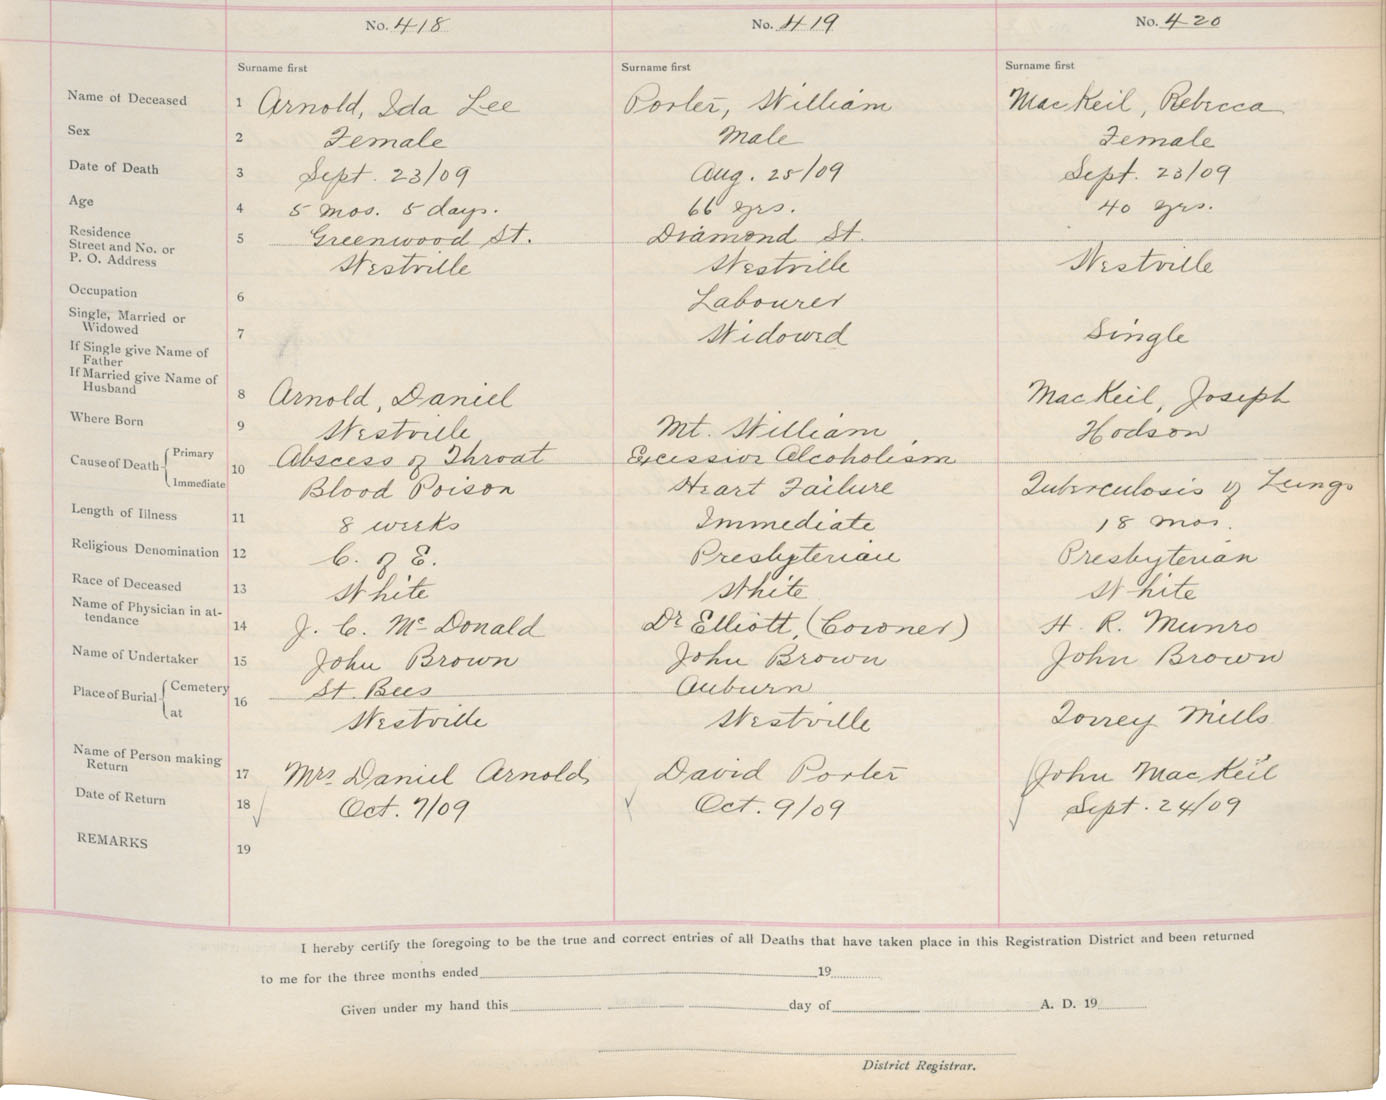 No. 418 No. 419 No. 420
Surname first Surname first Surname first
Name of Deceased 1 Arnold, Ida Lee Porter, William MacKeil, Rebecca
Sex 2 Female Male Female
Date of Death 3 Sept. 23/09 Aug. 25/09 Sept. 23/09
Age 4 5 mos. 5 days. 66 yrs. 40 yrs.
Residence
Street and No. or 5 Greenwood St. Diamond St.
P. O. Address Westville Westville Westville
Occupation 6 Labourer
Single, Married or
Widowed 7 Widowed Single
If Single give Name of
Father
If Married give Name of
Husband 8 Arnold, Daniel MacKeil, Joseph
Where Born 9 Westville Mt. William Hodson
Cause of Death Primary 10 Abscess of Throat Excessive Alcoholism
Immediate Blood Poison Heart Failure Tuberculosis of Lungs
Length of Illness 11 8 weeks Immediate 18 mos.
Religious Denomination 12 C. of E. Presbyterian Presbyterian
Race of Deceased 13 White White White
Name of Physician in at-
tendance 14 J. C. McDonald Dr Elliott, (Coroner) H. R. Munro
Name of Undertaker 15 John Brown John Brown John Brown
Place of Burial Cemetery 16 St. Bees Auburn
at Westville Westville Torrey Mills
Name of Person making
Return 17 Mrs Daniel Arnold David Porter John MacKeil
Date of Return 18 Oct. 7/09 Oct. 9/09 Sept. 24/09
REMARKS 19
I hereby certify the foregoing to be the true and correct entries of all Deaths that have taken place in this Registration District and been returned
to me for the three months ended 19
Given under my hand this day of A. D. 19
District Registrar.